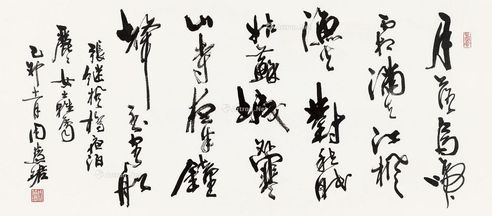 月落烏啼
霜滿天江楓
漁火對愁眠
姑蘇城外寒
山寺夜半鐘
聲到客船
張继楓橋夜泊
女士雅屬
月周慧珺